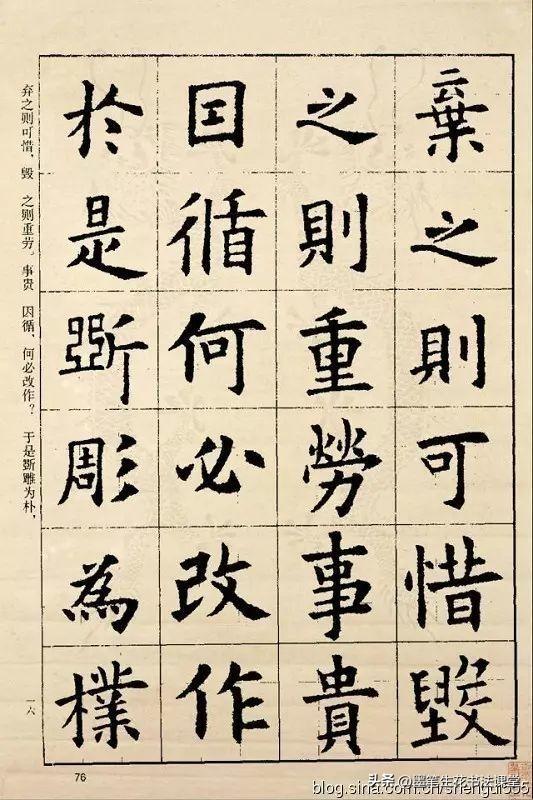 棄之則可惜毀
之則重勞事貴
因循何必改作
於是斲彫為樸
弃之则可惜、毁 之则重劳。事贵 因循、何必改作？ 于是斲雕为朴，
一六
76
头条 @墨笔生花书法课堂
blog.sina.com.cn/shengui555